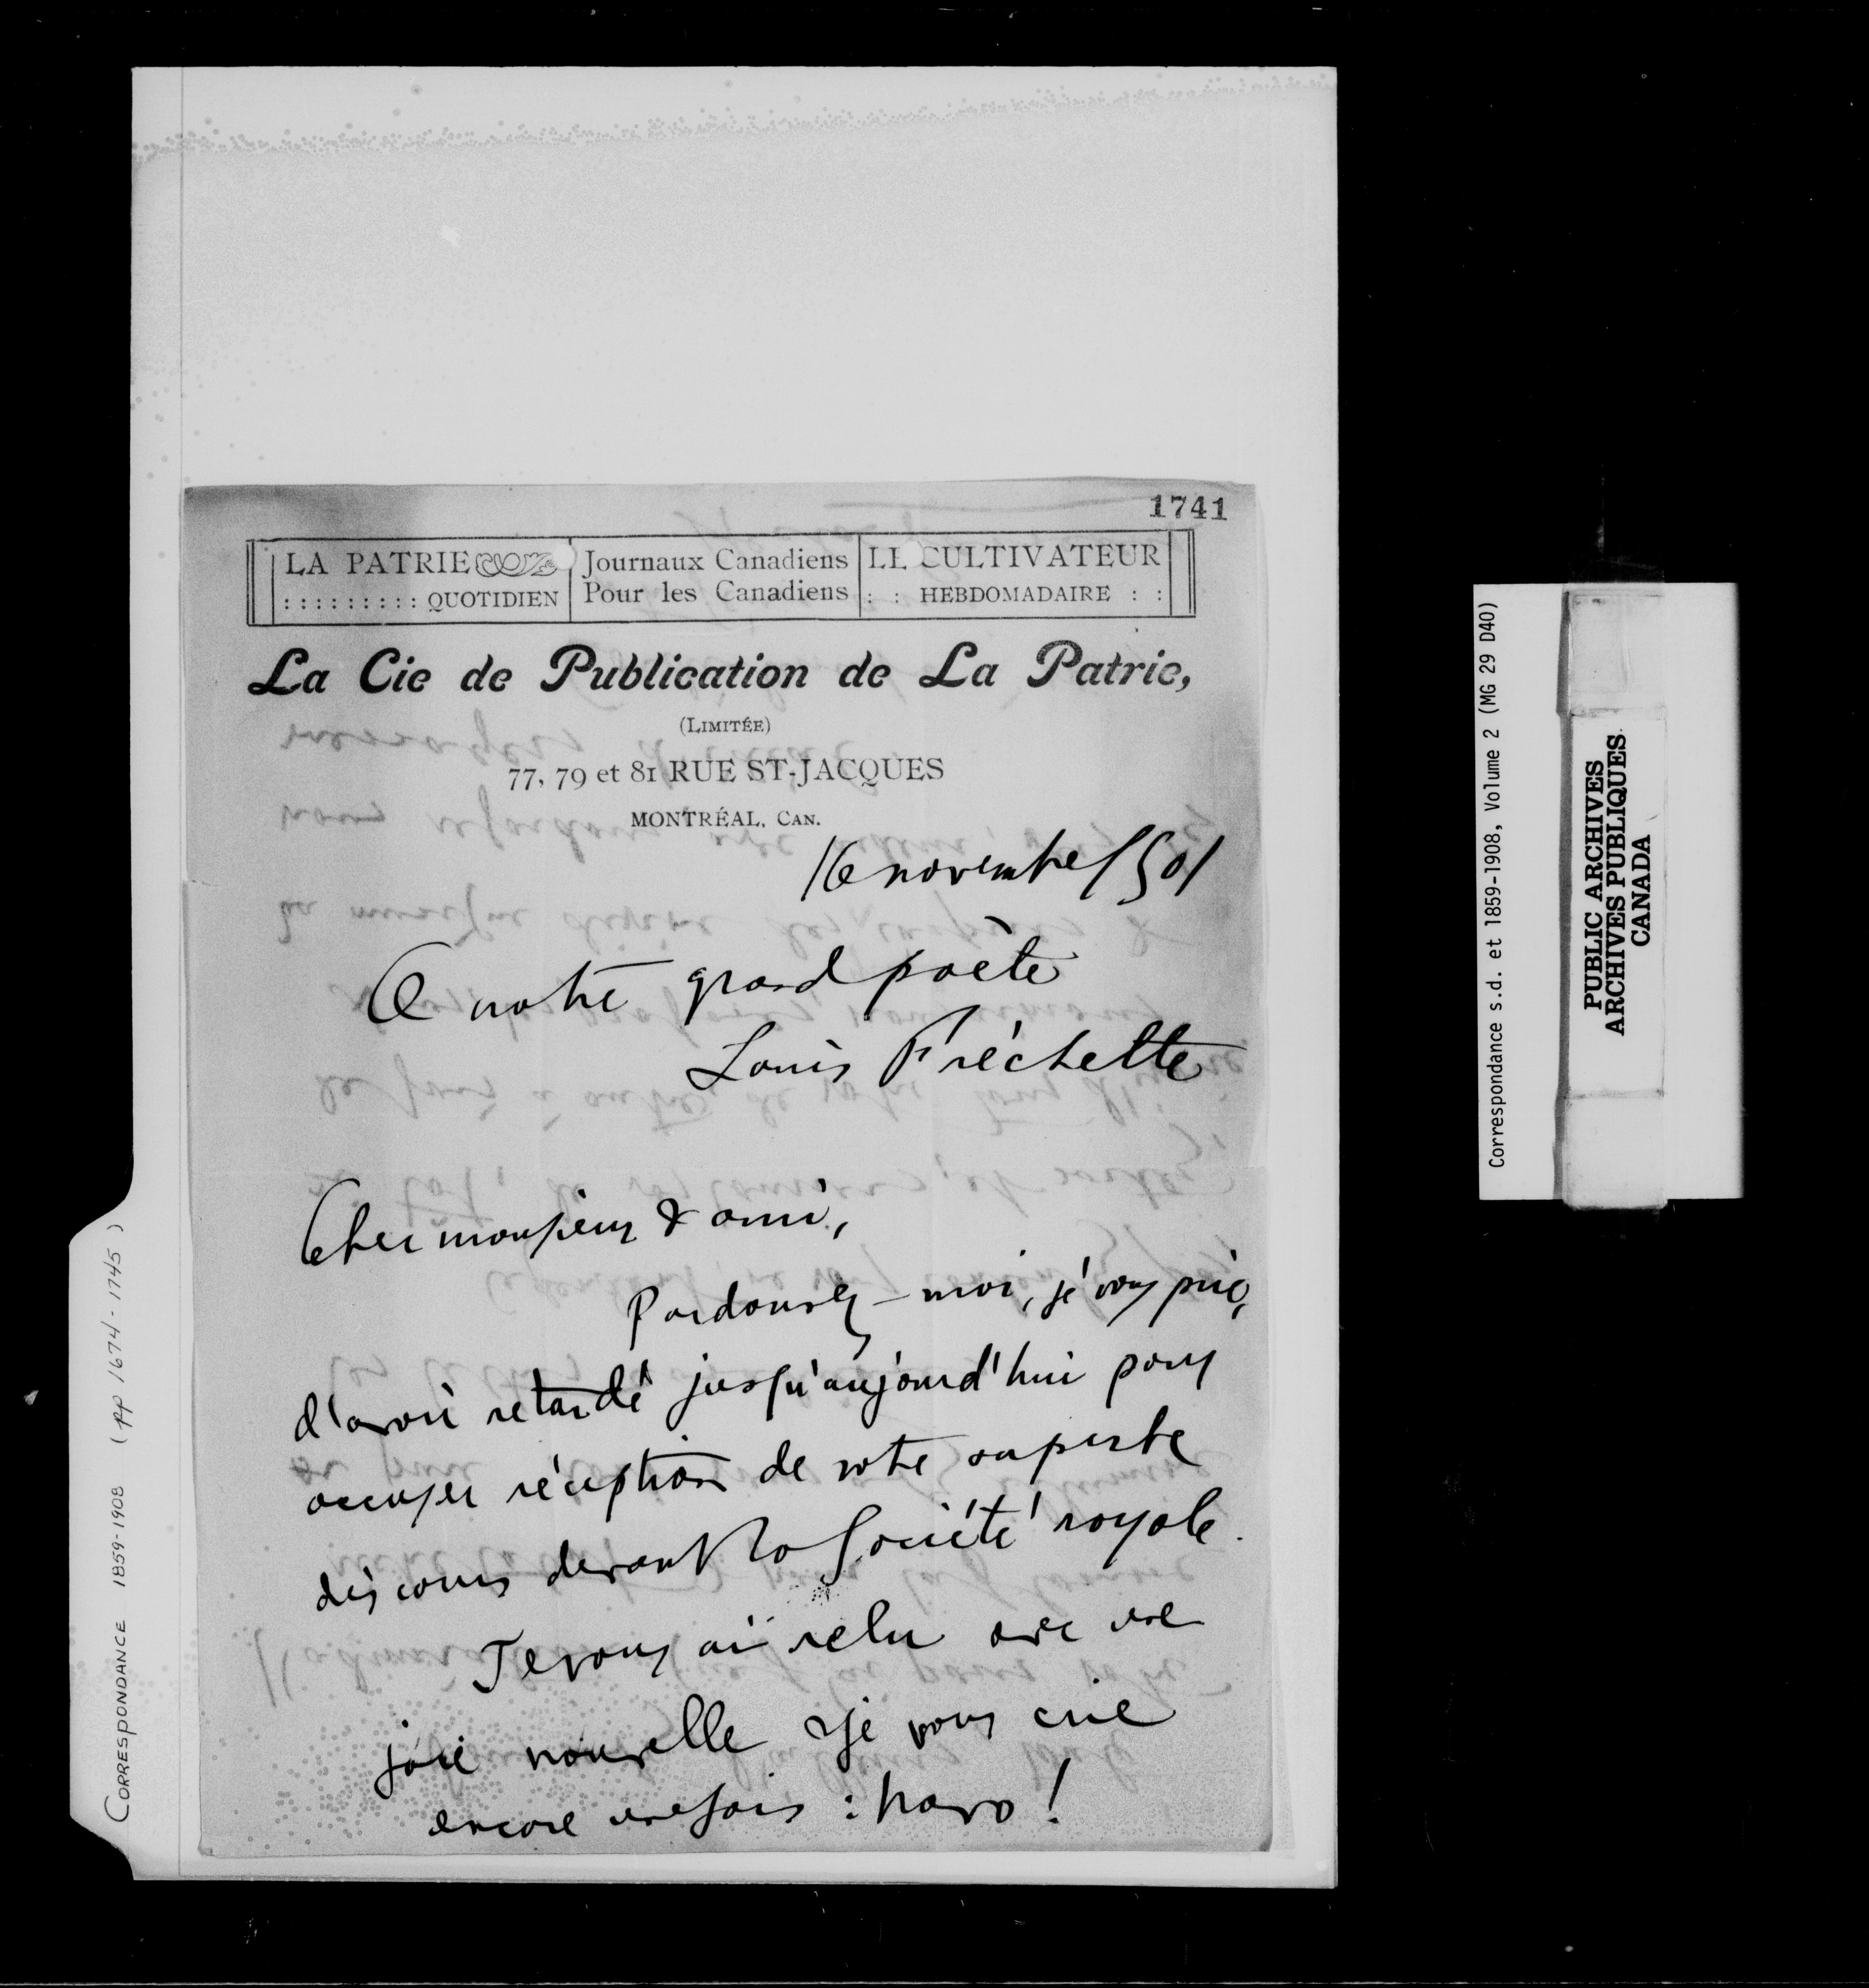 1741
LA PATRIE
: : : : : : : : : QUOTIDIEN
Journaux Canadiens
Pour les Canadiens
LE CULTIVATEUR
: : HEBDOMADAIRE : :
La Cie de Publication de La Patrie,
(LIMITÉE)
77, 79 et 81 RUE ST-JACQUES
MONTRÉAL, CAN.
16 novembre 1901
A notre grand poète
Louis Fréchette
Cher monsieur & ami,
Pardonnez-moi, je vous prie,
d'avoir retardé jusqu'aujourd'hui pour
accuser réception de votre superbe
discours devant la Société royale.
Je vous ai relu avec une
joie nouvelle & je vous crie
encore une fois : bravo !
CORRESPONDANCE 1859-1908 (pp 1674-1745)
Correspondance s.d. et 1859-1908, Volume 2 (MG 29 D40)
PUBLIC ARCHIVES
ARCHIVES PUBLIQUES
CANADA